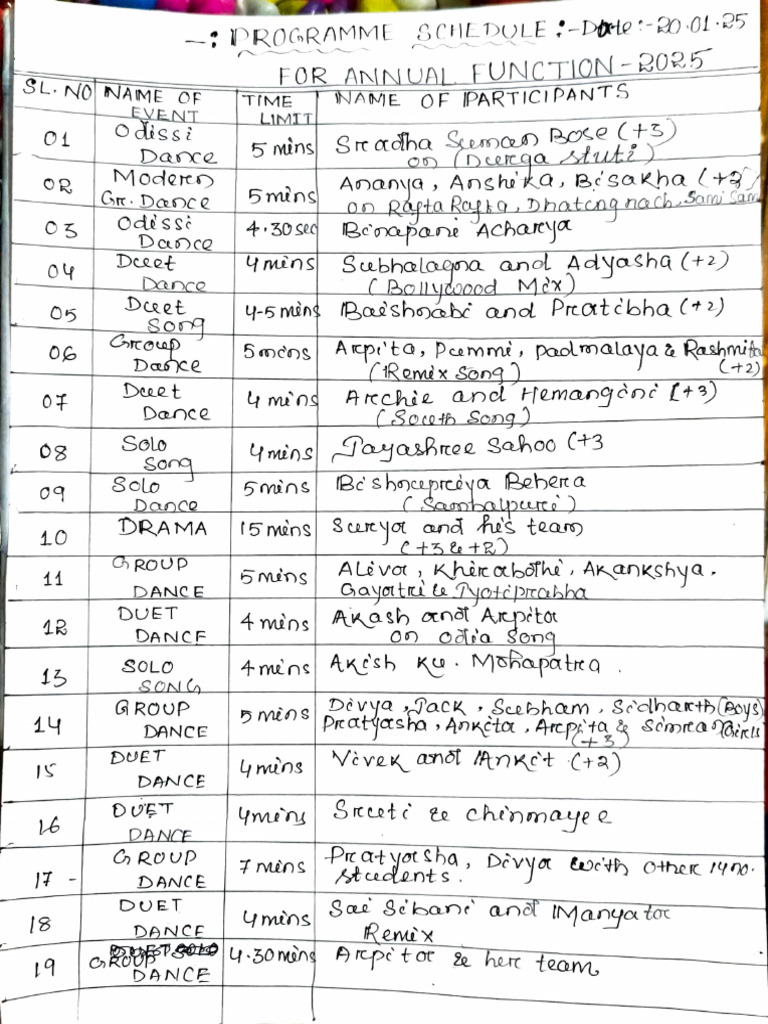 -: PROGRAMME SCHEDULE :- Date:- 20.01.25
FOR ANNUAL FUNCTION - 2025
SL. NO NAME OF EVENT TIME LIMIT NAME OF PARTICIPANTS
01 Odissi Dance 5 mins Sradha Suman Bose (+3)
on (Durga stuti)
02 Modern Gr. Dance 5 mins Ananya, Anshika, Bisakha (+3)
on Rajta Rajta, Dhatcng nach, Sami Sami
03 Odissi Dance 4.30 sec Binapani Acharya
04 Duet Dance 4 mins Subhalagna and Adyasha (+2)
(Bollywood Mix)
05 Duet Song 4-5 mins Baishnabi and Pratibha (+2)
06 Group Dance 5 mins Arpita, Pummi, padmalaya & Rashmita
(Remix Song) (+2)
07 Duet Dance 4 mins Archie and Hemangini (+3)
(South Song)
08 Solo Song 4 mins Jayashree Sahoo (+3
09 Solo Dance 5 mins Bishnupriya Behera
(Sambalpuri)
10 DRAMA 15 mins Surya and his team
(+3 & +2)
11 GROUP DANCE 5 mins Aliva, Khirabdhi, Akankshya.
Gayatri & Jyotiprabha
12 DUET DANCE 4 mins Akash and Arpita
on odia song
13 SOLO SONG 4 mins Akish ku. Mohapatra.
14 GROUP DANCE 5 mins Divya, Jack, Subham, Sidharth (Boys)
Pratyasha, Ankita, Arpita & Simran (Girls
(+3)
15 DUET DANCE 4 mins Vivek and Ankit (+2)
16 DUET DANCE 4 mins Sruti & Chinmayee
17 - GROUP DANCE 7 mins Pratyasha, Divya with other 14 no.
students.
18 DUET DANCE 4 mins Sai Sibani and Manyata
Remix
19 GROUP DANCE 4.30 mins Arpita & her team